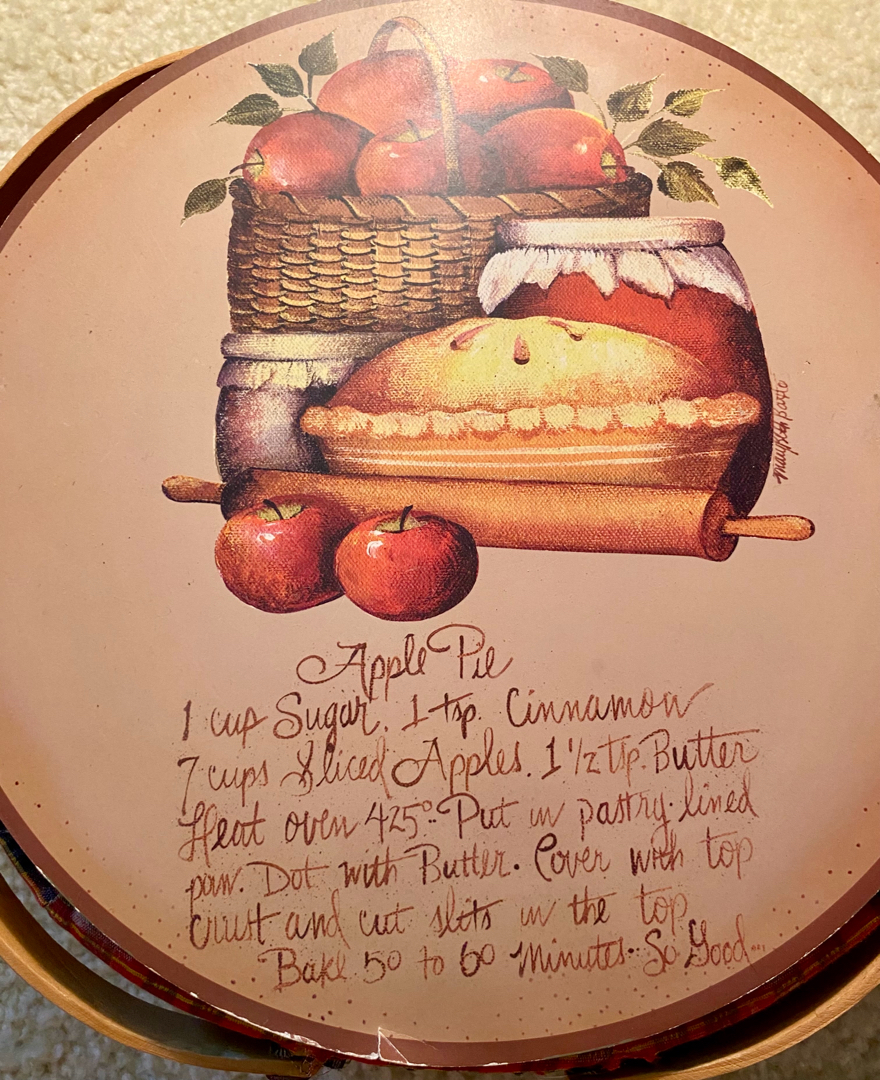 Apple Pie
1 cup Sugar. 1 tsp. Cinnamon
7 cups Sliced Apples. 1 1/2 tsp. Butter
Heat oven 425°. Put in pastry-lined
pan. Dot with Butter. Cover with top
crust and cut slits in the top
Bake 50 to 60 Minutes. So Good...